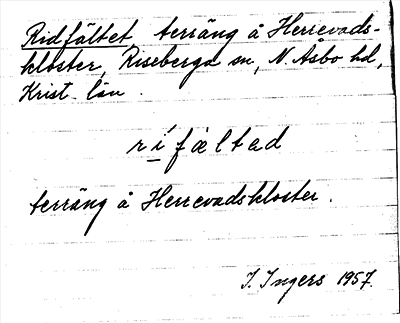 Ridfältet terräng å Herrevads-
kloster, Riseberga sn, N. Åsbo hd,
Krist. län.
rífälted
terräng å Herrevadskloster.
I. Ingers 1957.